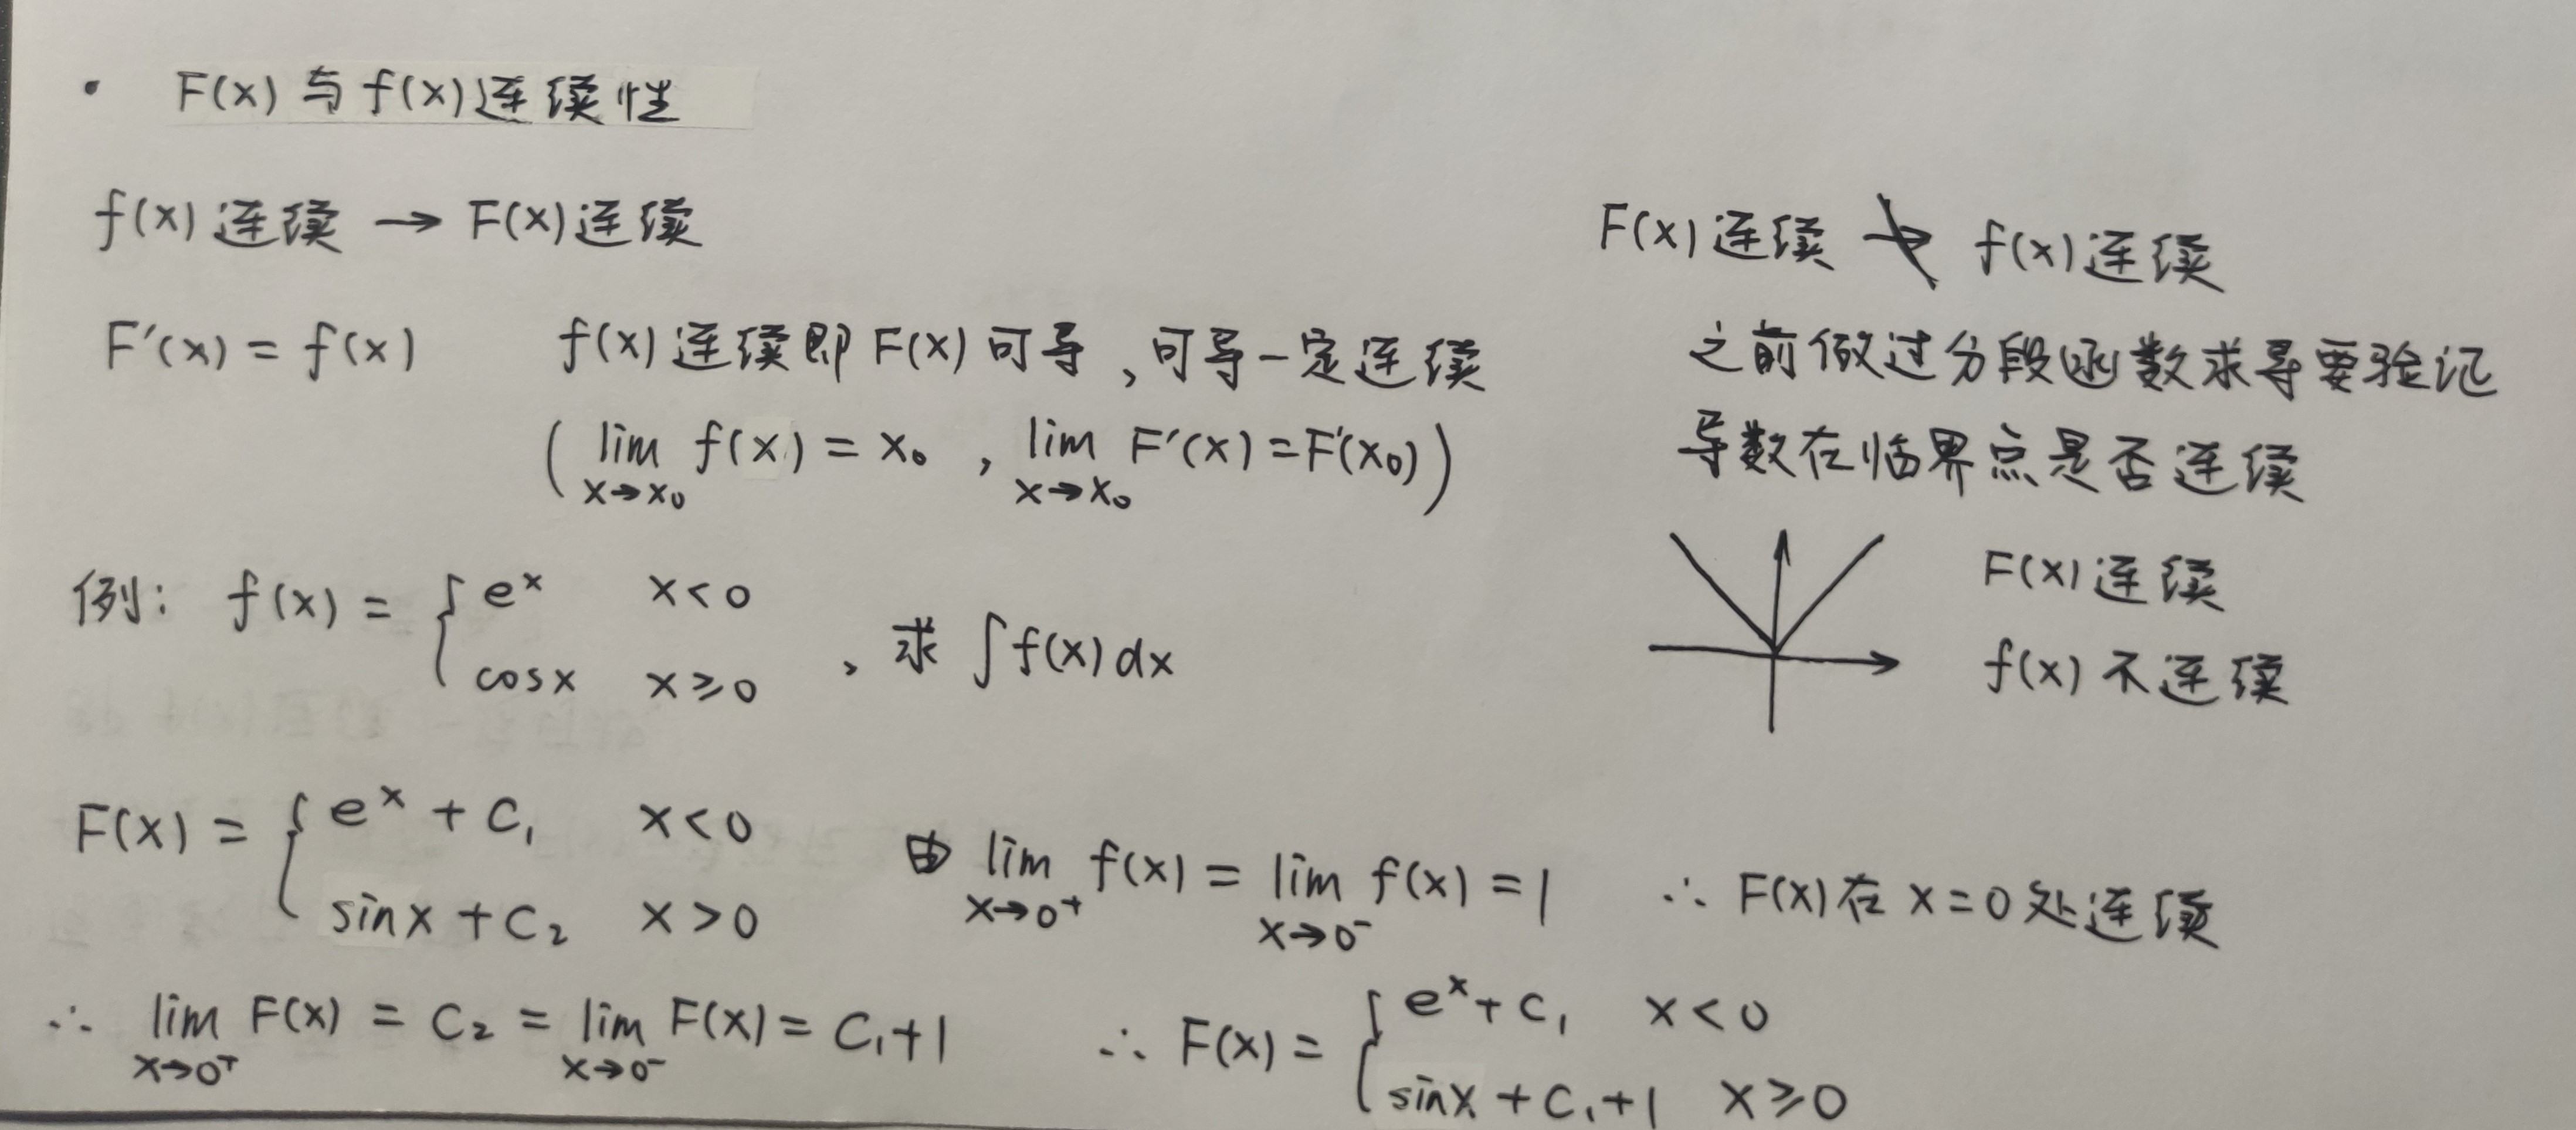 · F(x)与f(x)连续性
f(x)连续 → F(x)连续
F'(x) = f(x) f(x)连续即F(x)可导,可导一定连续
( lim f(x) = x₀ , lim F'(x) = F'(x₀) )
x→x₀ x→x₀
F(x)连续 ↛ f(x)连续
之前做过分段函数求导要验记
导数在临界点是否连续
F(x)连续
f(x)不连续
例: f(x) = { eˣ x<0
cosx x≥0 , 求 ∫f(x)dx
F(x) = { eˣ + C₁ x<0
sinx + C₂ x>0
由 lim f(x) = lim f(x) = 1 ∴ F(x)在 x=0 处连续
x→0⁺ x→0⁻
∴ lim F(x) = C₂ = lim F(x) = C₁+1 ∴ F(x) = { eˣ+C₁ x<0
x→0⁺ x→0⁻ sinx + C₁+1 x≥0